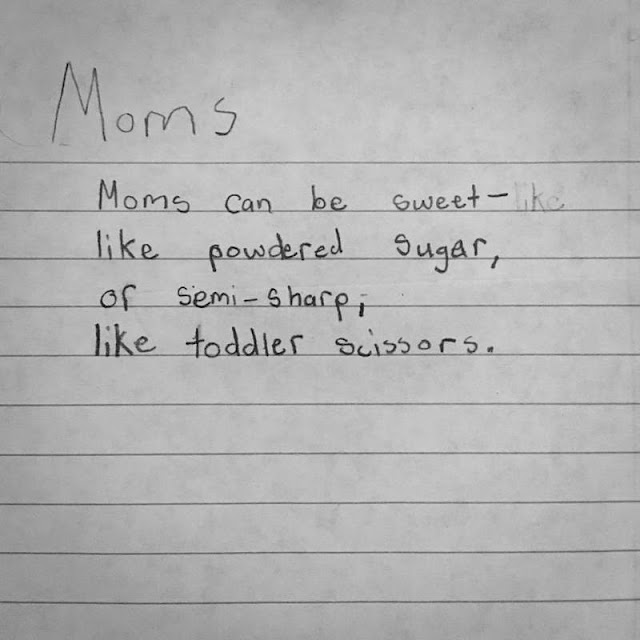 Moms
Moms can be sweet- like
like powdered sugar,
or semi-sharp;
like toddler scissors.